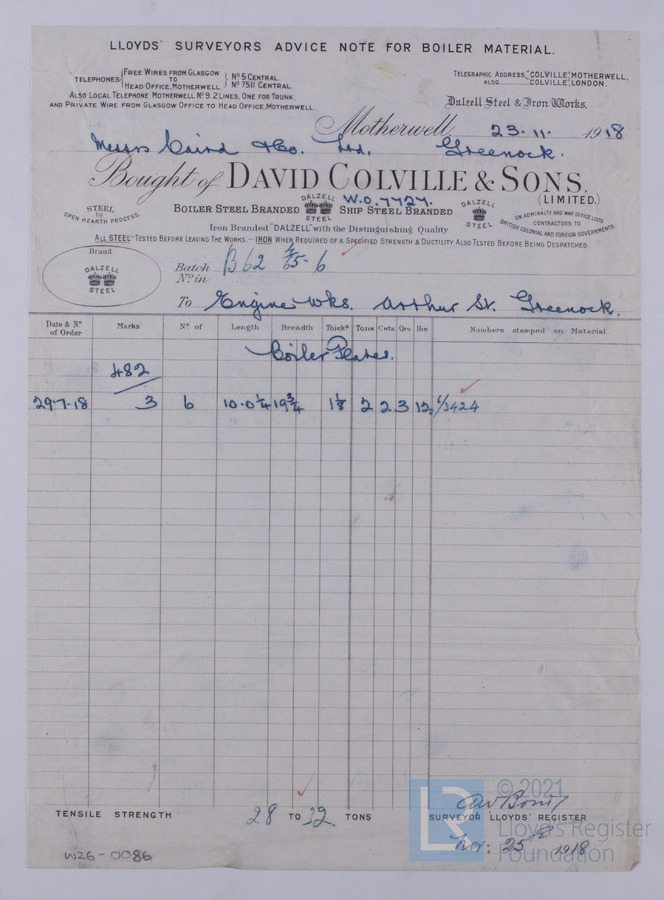 LLOYDS' SURVEYORS ADVICE NOTE FOR BOILER MATERIAL.
TELEPHONES { FREE WIRES FROM GLASGOW TO HEAD OFFICE, MOTHERWELL } Nº 5 CENTRAL. Nº 7511 CENTRAL.
ALSO LOCAL TELEPHONE MOTHERWELL Nº 9. 2 LINES, ONE FOR TRUNK
AND PRIVATE WIRE FROM GLASGOW OFFICE TO HEAD OFFICE, MOTHERWELL
TELEGRAPHIC ADDRESS, "COLVILLE", MOTHERWELL.
ALSO "COLVILLE", LONDON.
Dalzell Steel & Iron Works.
Motherwell 23.11. 1918
Messrs Caird & Co. Ltd. Greenock.
Bought of DAVID COLVILLE & SONS.
(LIMITED.)
STEEL by OPEN HEARTH PROCESS.
BOILER STEEL BRANDED DALZELL STEEL SHIP STEEL BRANDED DALZELL STEEL
W.O. 7727.
ON ADMIRALTY AND WAR OFFICE LISTS
CONTRACTORS TO
BRITISH COLONIAL AND FOREIGN GOVERNMENTS.
Iron Branded "DALZELL" with the Distinguishing Quality
ALL STEEL TESTED BEFORE LEAVING THE WORKS.—IRON WHEN REQUIRED OF A SPECIFIED STRENGTH & DUCTILITY ALSO TESTED BEFORE BEING DESPATCHED.
Brand
DALZELL STEEL
Batch Nº in B62 6
To Engine Wks. Arthur St. Greenock.
Date & Nº of Order Marks Nº of Length Breadth Thickˢ Tons Cwts Qrs lbs Numbers stamped on Material
Boiler Plates.
482
29.7.18 3 6 10.0¼ 19¾ 1⅛ 2 2 3 12
TENSILE STRENGTH 28 TO 32 TONS
SURVEYOR LLOYDS' REGISTER
Nov: 25 1918
W26-0086
LR
© 2021
Lloyd's Register
Foundation